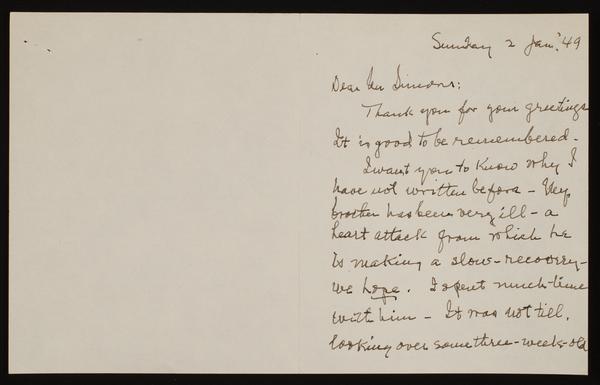 Sunday 2 Jan. '49
Dear Mr Simons:
Thank you for your greetings
It is good to be remembered -
I want you to know why I
have not written before - My
brother has been very ill - a
heart attack from which he
is making a slow - recovery -
we hope. I spent much - time
with him - It was not till,
looking over some three - week - old